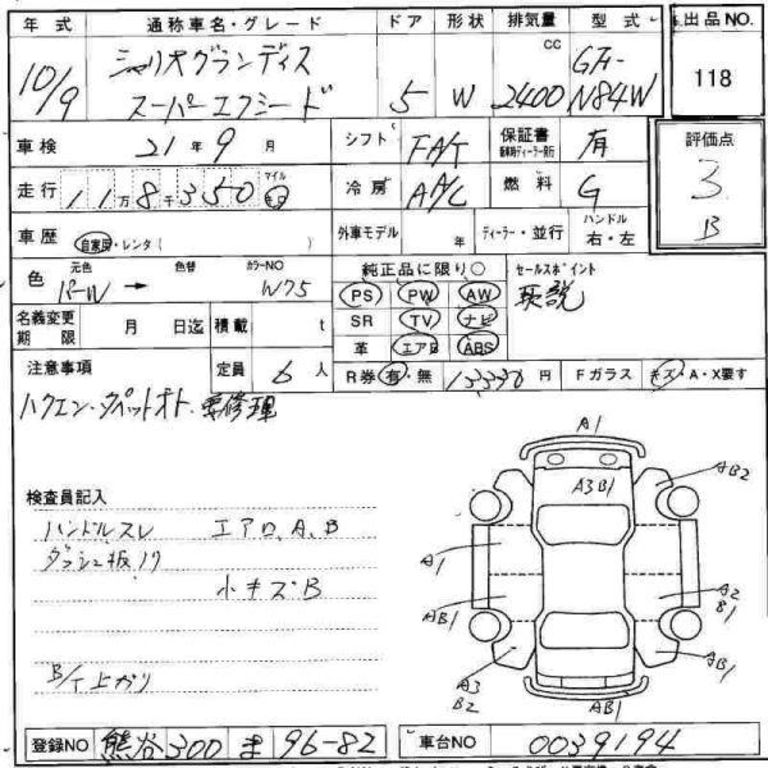 年式 通称車名・グレード ドア 形状 排気量 型式 出品NO.
10/9 シャリオグランディス スーパーエクシード 5 W 2400 CC GF-N84W 118
車検 21年9月 シフト FA/T 保証書 新車時ディーラー発行 有 評価点
走行 11万8千350 マイル キロ 冷房 A/C 燃料 G 3
B
車歴 自家用・レンタ( ) 外車モデル 年 ディーラー・並行 ハンドル 右・左
色 元色 パーW → 色替 カラーNO W75 純正品に限り○ セールスポイント
取説
PS PW AW
名義変更期限 月 日迄 積載 t SR TV ナビ
革 エアB ABS
注意事項 定員 6人 R券 有・無 13330円 Fガラス キズ・A・X要す
ハクエン・タペットオト・要修理
A1
AB2
A3B1
検査員記入
ハンドルスレ エアロ、A、B
ダッシュ板
A1
小キズB
A2
B1
AB1
AB1
B/T上がり
A3
B2
AB1
登録NO 熊谷300 ま 96-82 車台NO 0039194